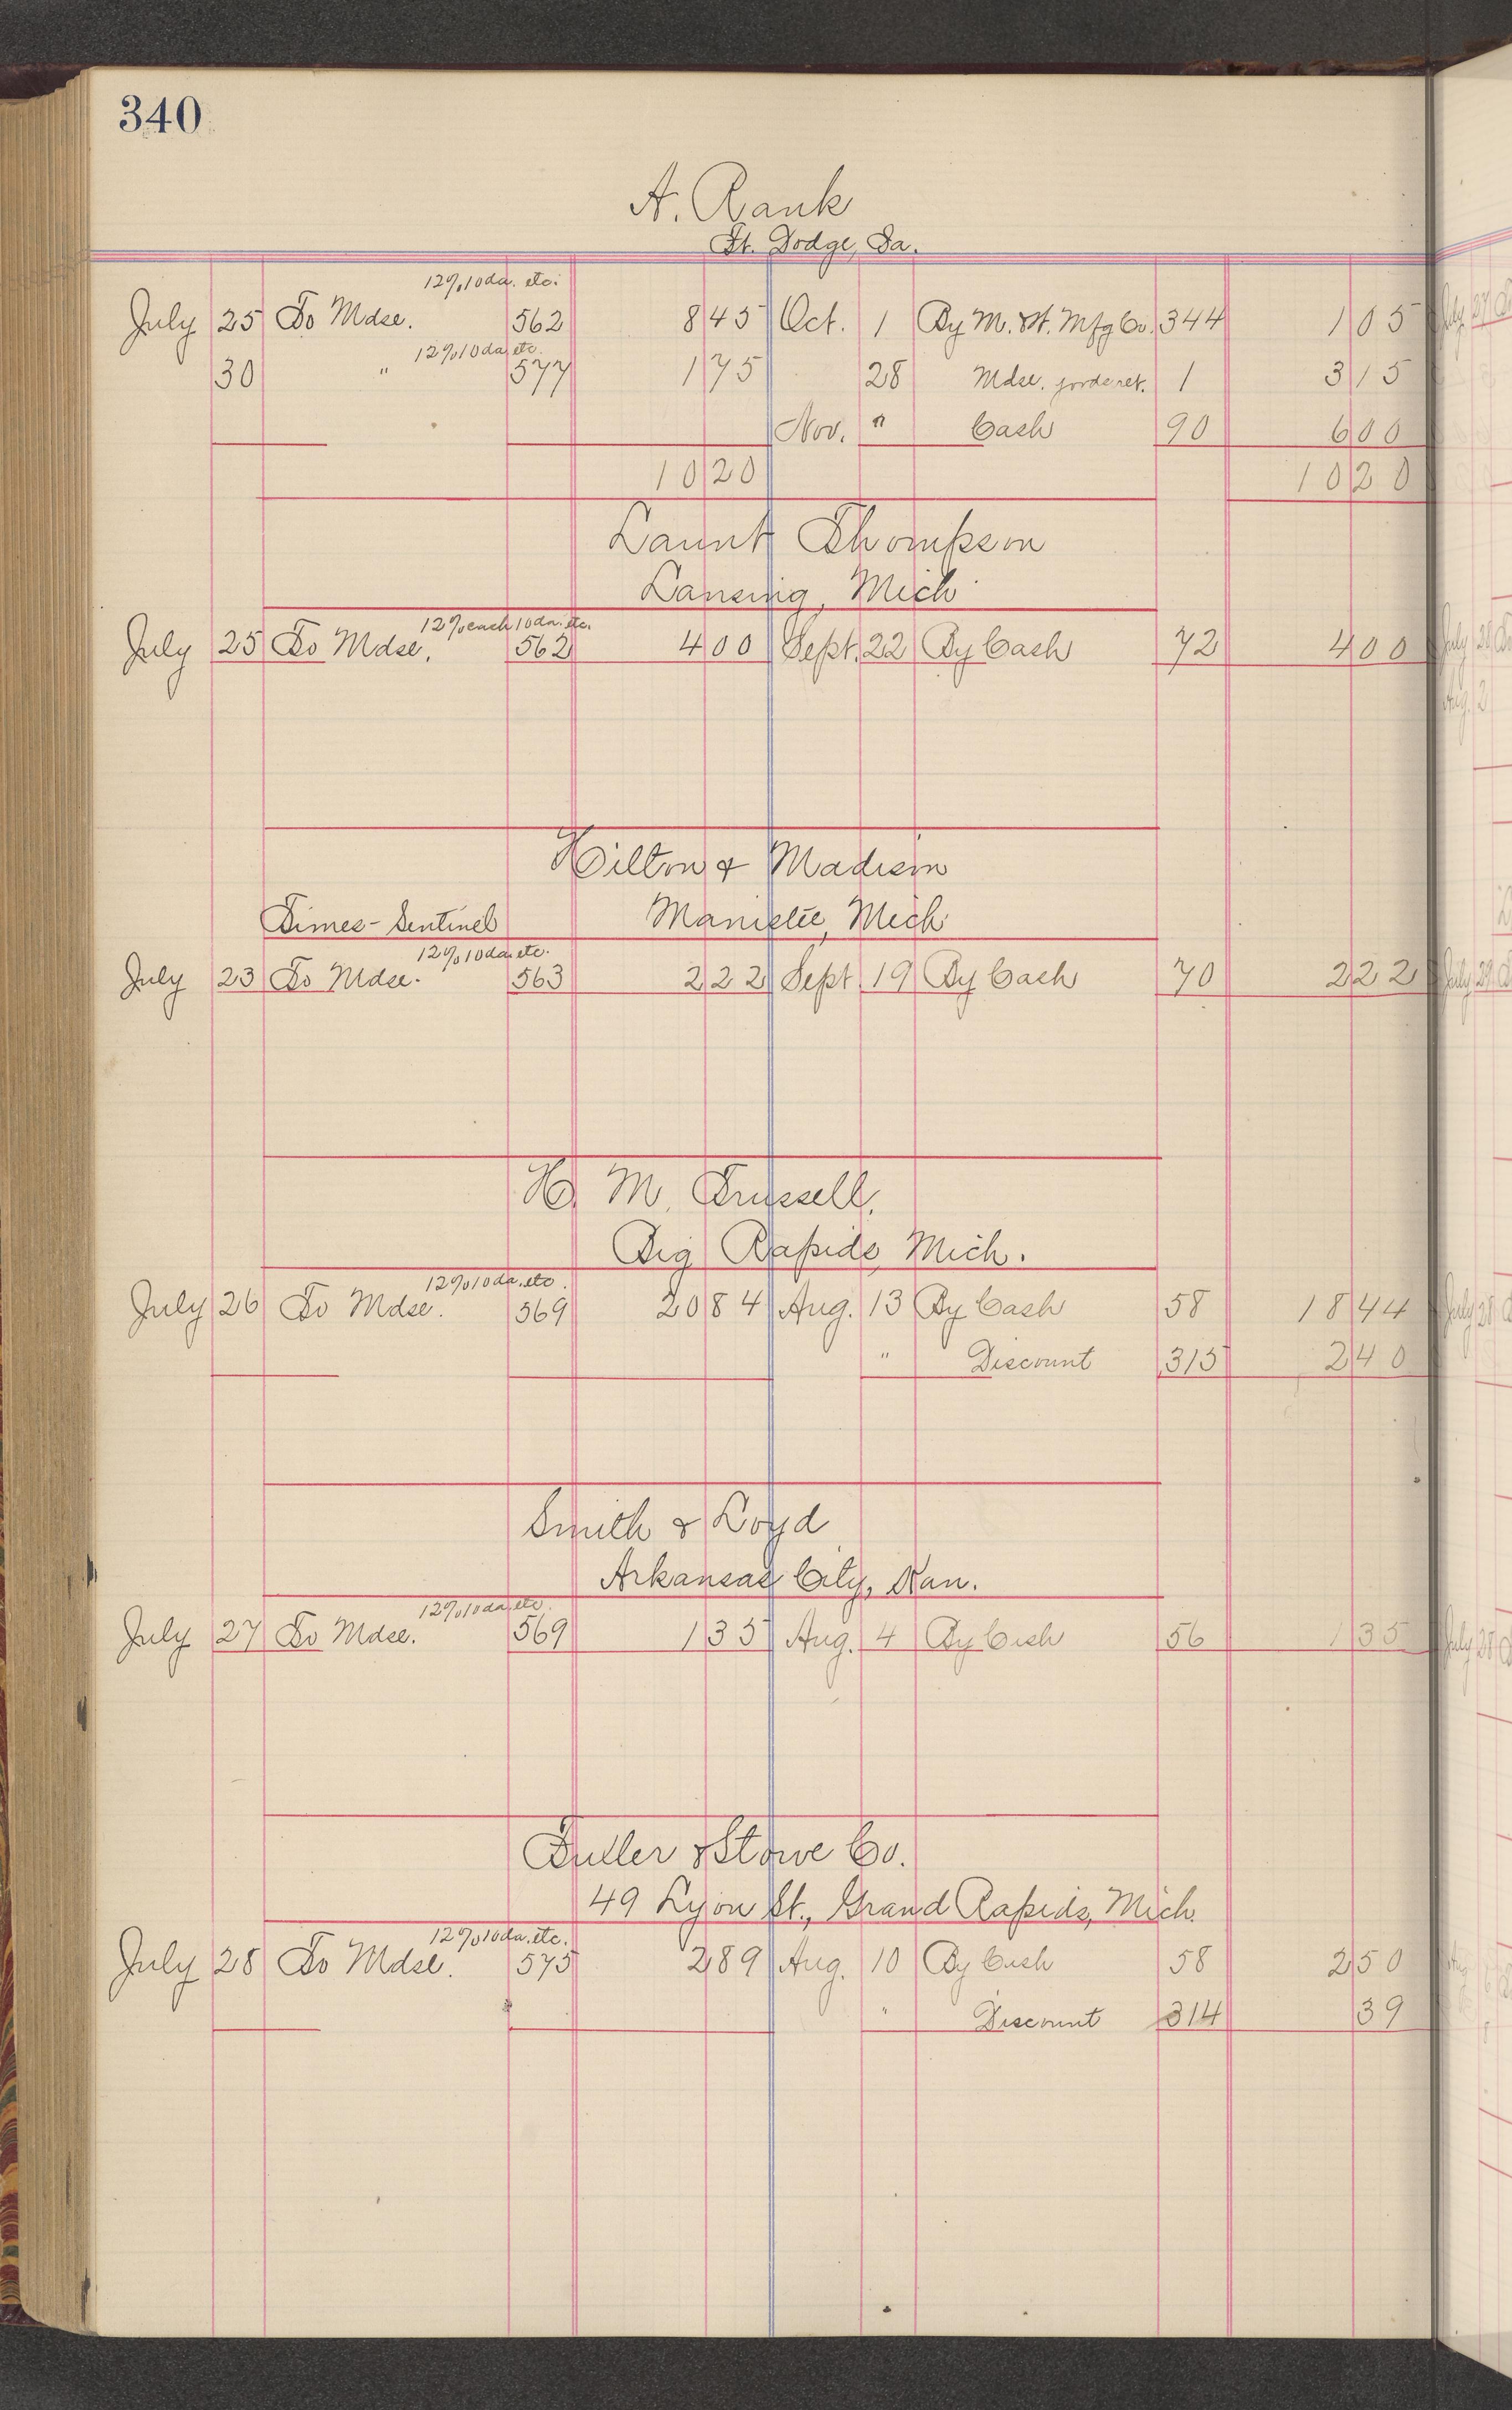 340
A. Rank
Ft. Dodge, Ia.
12% 10 da. etc.
July 25 To Mdse. 562 8 45 Oct. 1 By M. & H. Mfg Co. 344 1 05
12% 10 da. etc.
30 " 577 1 75 28 Mdse. goods ret. 1 3 15
Nov. " Cash 90 6 00
10 20 10 20
Launt Thompson
Lansing, Mich
12% cash 10 da. etc.
July 25 To Mdse. 562 4 00 Sept. 22 By Cash 72 4 00
Hilton & Madison
Times-Sentinel Manistee, Mich
12% 10 da. etc.
July 23 To Mdse. 563 2 22 Sept. 19 By Cash 70 2 22
H. M. Trussell,
Big Rapids, Mich.
12% 10 da. etc.
July 26 To Mdse. 569 20 84 Aug. 13 By Cash 58 18 44
" Discount 313 2 40
Smith & Loyd
Arkansas City, Kan.
12% 10 da. etc.
July 27 To Mdse. 569 1 35 Aug. 4 By Cash 56 1 35
Fuller & Stowe Co.
49 Lyon St., Grand Rapids, Mich.
12% 10 da. etc.
July 28 To Mdse. 575 2 89 Aug. 10 By Cash 58 2 50
" Discount 314 39